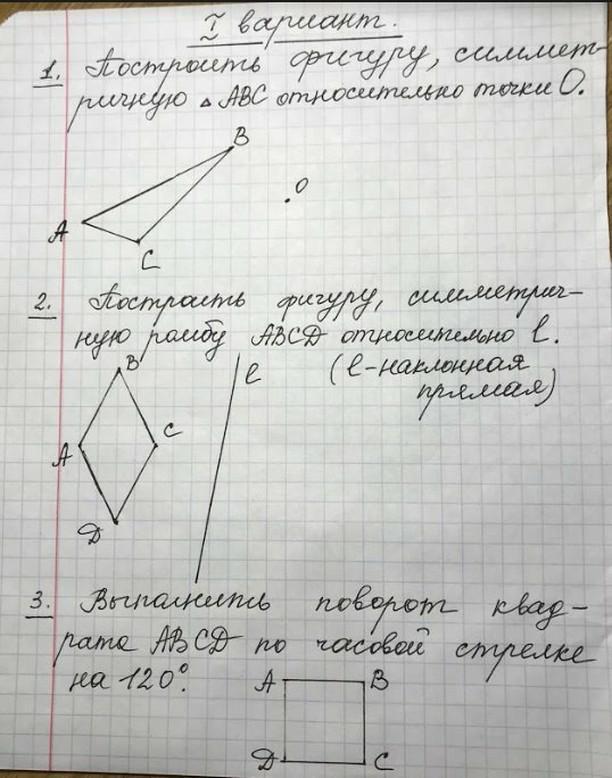 I вариант.
1. Построить фигуру, симмет-
ричную △ ABC относительно точки O.
B
O
A
C
2. Построить фигуру, симметрич-
ную ромбу ABCD относительно l.
B
l
(l-наклонная
прямая)
C
A
D
3. Выполнить поворот квад-
рата ABCD по часовой стрелке
на 120°.
A B
D C